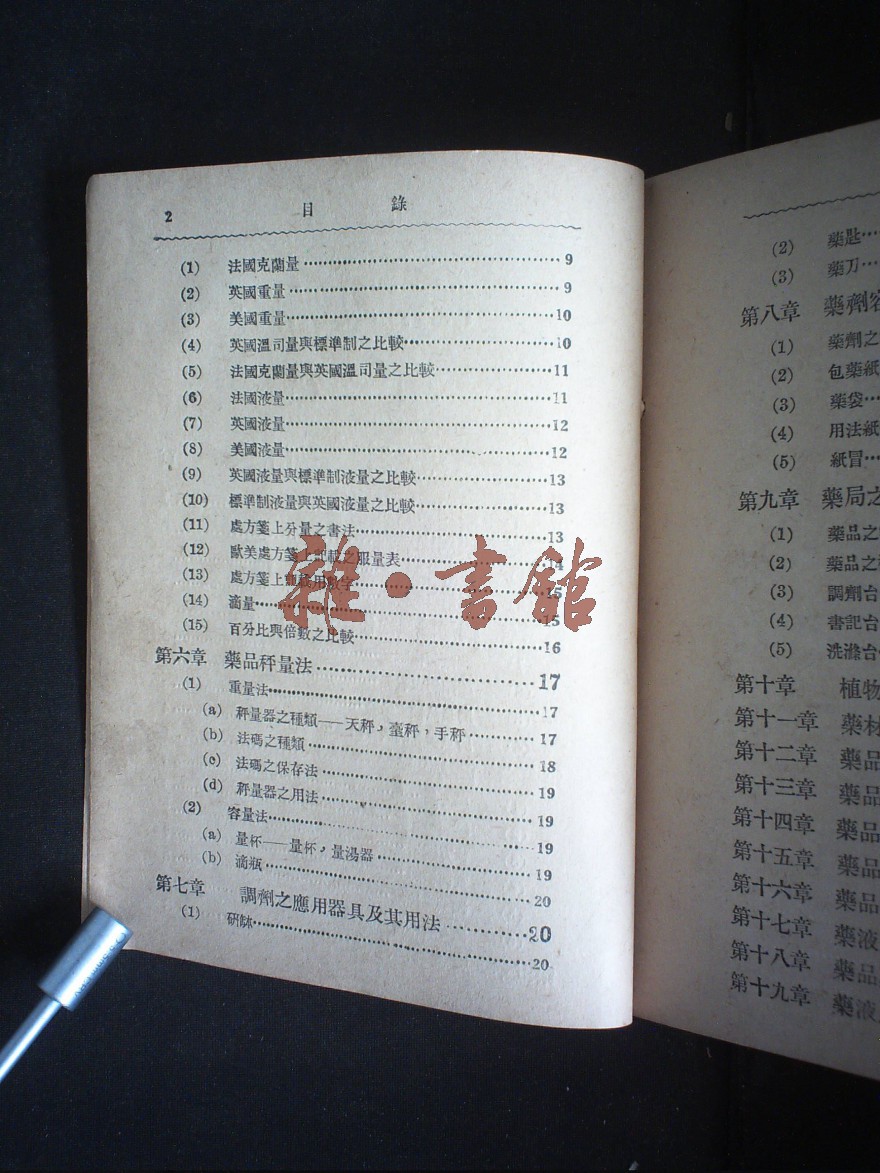 2 目錄
(1) 法國克蘭量 9
(2) 英國重量 9
(3) 美國重量 10
(4) 英國溫司量與標準制之比較 10
(5) 法國克蘭量與英國溫司量之比較 11
(6) 法國液量 11
(7) 英國液量 12
(8) 美國液量 12
(9) 英國液量與標準制液量之比較 13
(10) 標準制液量與英國液量之比較 13
(11) 處方箋上分量之書法 13
(12) 歐美處方箋上記載之服量表 14
(13) 處方箋上記載用數字 15
(14) 滴量 15
(15) 百分比與倍數之比較 16
第六章 藥品秤量法 17
(1) 重量法 17
(a) 秤量器之種類——天秤，臺秤，手秤 17
(b) 法碼之種類 18
(c) 法碼之保存法 19
(d) 秤量器之用法 19
(2) 容量法 19
(a) 量杯——量杯，量湯器 19
(b) 滴瓶 20
第七章 調劑之應用器具及其用法 20
(1) 研缽 20
雜·書館
(2) 藥匙
(3) 藥刀
第八章 藥劑容
(1) 藥劑之
(2) 包藥紙
(3) 藥袋
(4) 用法紙
(5) 紙冒
第九章 藥局之
(1) 藥品之
(2) 藥品之
(3) 調劑台
(4) 書記台
(5) 洗滌台
第十章 植物
第十一章 藥材
第十二章 藥品
第十三章 藥品
第十四章 藥品
第十五章 藥品
第十六章 藥品
第十七章 藥液
第十八章 藥品
第十九章 藥液